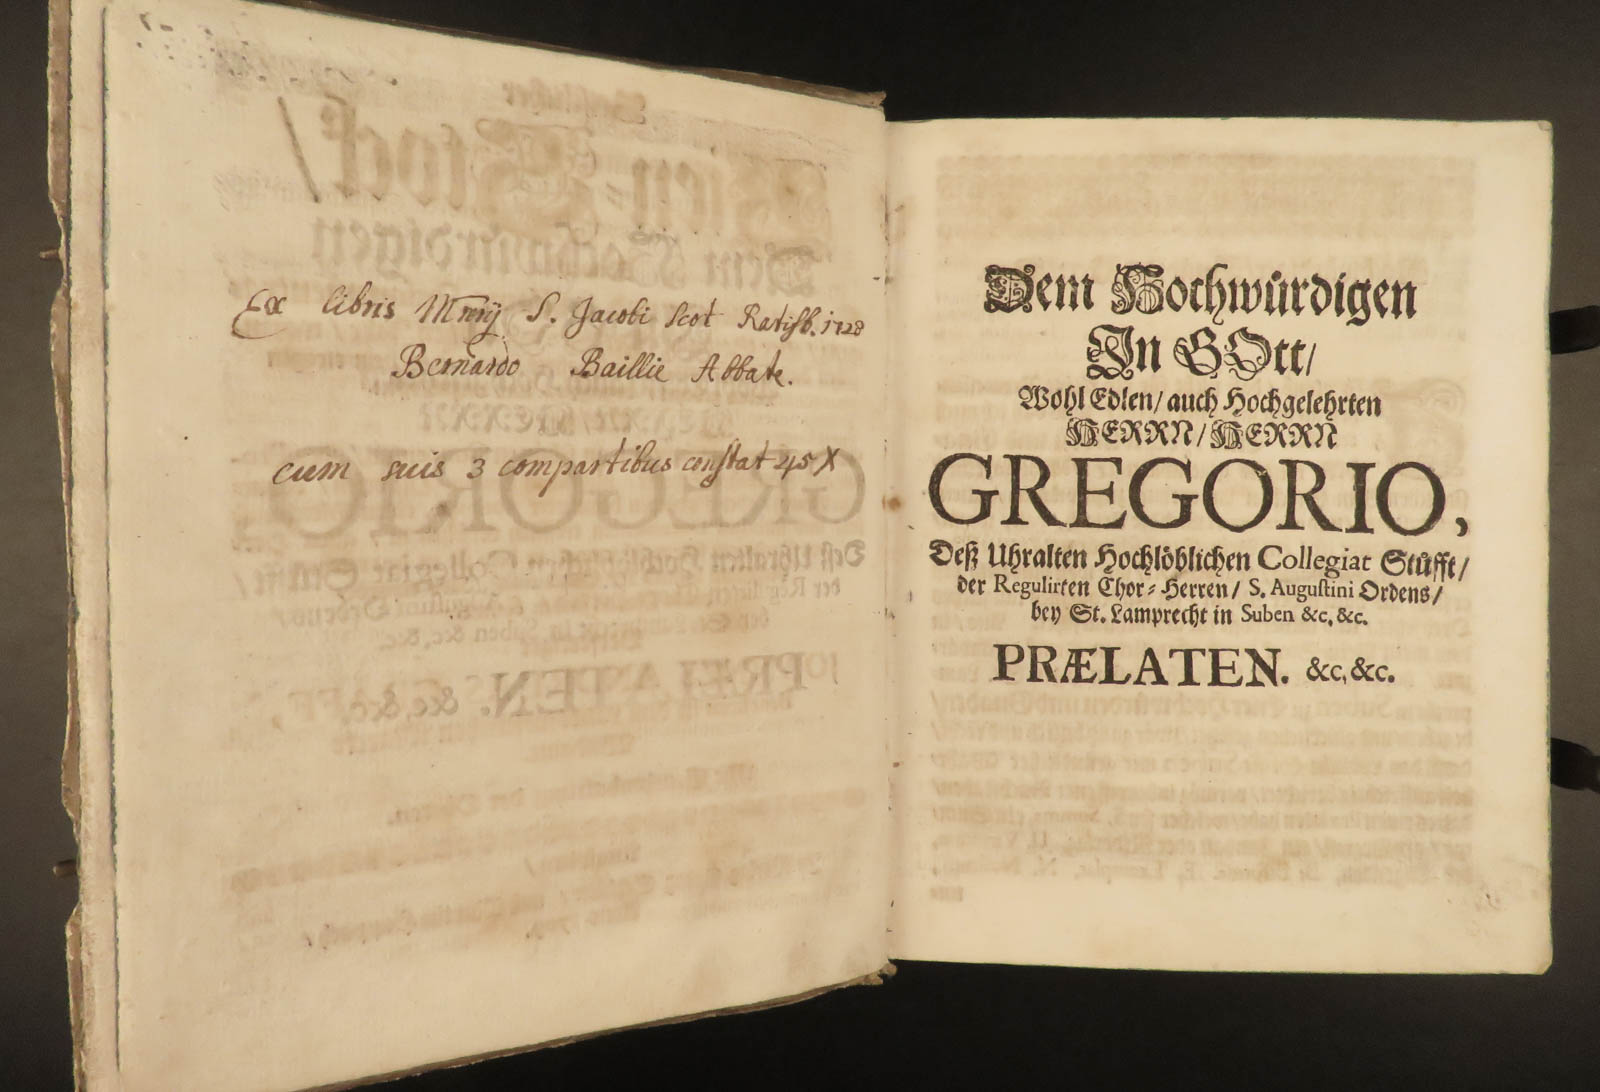 Ex libris Mrij S. Jacobi Scot Ratisb. 1728
Bernardo Baillie Abbate.
cum suis 3 compartibus constat 45 X
Dem Hochwůrdigen
In GOtt/
Wohl Edlen/ auch Hochgelehrten
HERRN/ HERRN
GREGORIO,
Deß Uhralten Hochlöblichen Collegiat Stůfft/
der Regulirten Chor-Herren/ S. Augustini Ordens/
bey St. Lamprecht in Suben &c, &c.
PRÆLATEN. &c, &c.